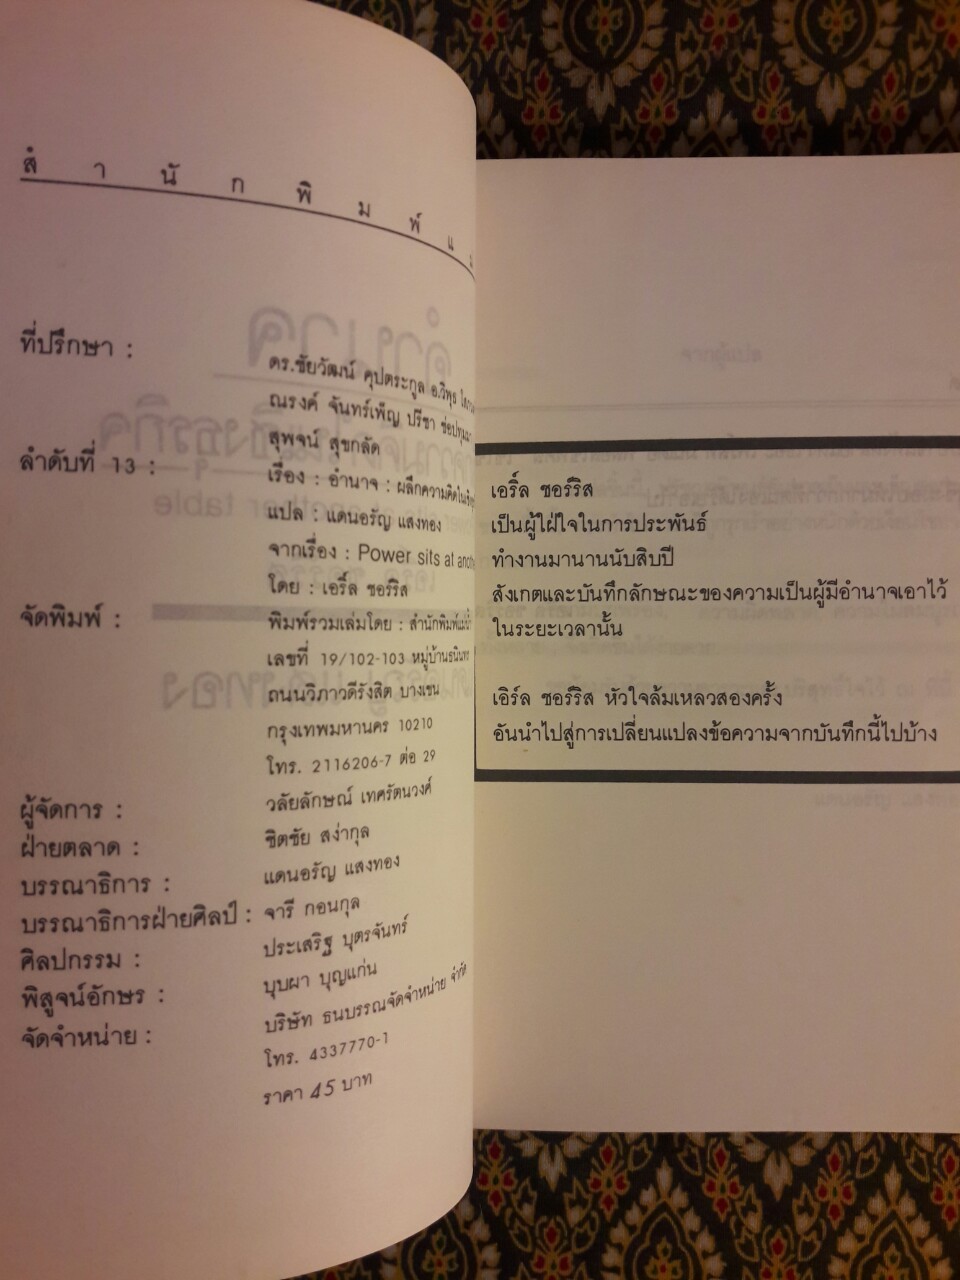 สำนักพิมพ์แม
ที่ปรึกษา :
ดร.ชัยวัฒน์ คุปตระกูล อ.วิพุธ
ณรงค์ จันทร์เพ็ญ ปรีชา ช่อปทุมมา
สุพจน์ สุขกลัด
ลำดับที่ 13 :
เรื่อง : อำนาจ : ผลึกความคิดในเชิงธุรกิจ
แปล : แดนอรัญ แสงทอง
จากเรื่อง : Power sits at another
โดย : เอริ์ล ชอร์ริส
จัดพิมพ์ :
พิมพ์รวมเล่มโดย : สำนักพิมพ์แม่น้ำ
เลขที่ 19/102-103 หมู่บ้านธนินทร
ถนนวิภาวดีรังสิต บางเขน
กรุงเทพมหานคร 10210
โทร. 2116206-7 ต่อ 29
ผู้จัดการ : วลัยลักษณ์ เทศรัตนวงศ์
ฝ่ายตลาด : ชิตชัย สง่ากุล
บรรณาธิการ : แดนอรัญ แสงทอง
บรรณาธิการฝ่ายศิลป์ : จารี กอนกุล
ศิลปกรรม : ประเสริฐ บุตรจันทร์
พิสูจน์อักษร : บุบผา บุญแก่น
จัดจำหน่าย : บริษัท ธนบรรณจัดจำหน่าย จำกัด
โทร. 4337770-1
ราคา 45 บาท
เอริ์ล ชอร์ริส
เป็นผู้ใฝ่ใจในการประพันธ์
ทำงานมานานนับสิบปี
สังเกตและบันทึกลักษณะของความเป็นผู้มีอำนาจเอาไว้
ในระยะเวลานั้น
เอิร์ล ชอร์ริส หัวใจล้มเหลวสองครั้ง
อันนำไปสู่การเปลี่ยนแปลงข้อความจากบันทึกนี้ไปบ้าง